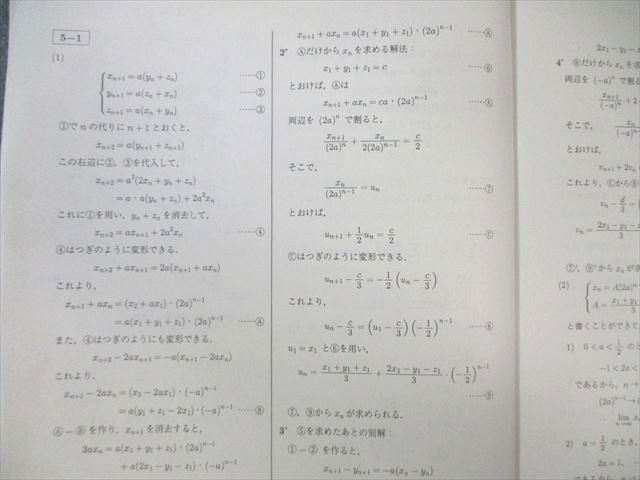 5-1
(1)
x_{n+1} = a(y_n + z_n) ……①
y_{n+1} = a(z_n + x_n) ……②
z_{n+1} = a(x_n + y_n) ……③
①で n の代りに n+1 とおくと,
x_{n+2} = a(y_{n+1} + z_{n+1})
この右辺に②, ③を代入して,
x_{n+2} = a²(2x_n + y_n + z_n)
= a・a(y_n + z_n) + 2a²x_n
これに①を用い, y_n + z_n を消去して,
x_{n+2} = ax_{n+1} + 2a²x_n ……④
④はつぎのように変形できる.
x_{n+2} + ax_{n+1} = 2a(x_{n+1} + ax_n)
これより,
x_{n+1} + ax_n = (x_2 + ax_1)・(2a)^{n-1}
= a(x_1 + y_1 + z_1)・(2a)^{n-1} ……Ⓐ
また, ④はつぎのようにも変形できる.
x_{n+2} - 2ax_{n+1} = -a(x_{n+1} - 2ax_n)
これより,
x_{n+1} - 2ax_n = (x_2 - 2ax_1)・(-a)^{n-1}
= a(y_1 + z_1 - 2x_1)・(-a)^{n-1} ……Ⓑ
Ⓐ-Ⓑ を作り, x_{n+1} を消去すると,
3ax_n = a(x_1 + y_1 + z_1)・(2a)^{n-1}
+ a(2x_1 - y_1 - z_1)・(-a)^{n-1}
x_{n+1} + ax_n = a(x_1 + y_1 + z_1)・(2a)^{n-1} ……Ⓐ
2° Ⓐだけから x_n を求める解法:
x_1 + y_1 + z_1 = c ……⑥
とおけば, Ⓐは
x_{n+1} + ax_n = ca・(2a)^{n-1} ……Ⓐ
両辺を (2a)^n で割ると,
x_{n+1}/(2a)^n + x_n/2(2a)^{n-1} = c/2
そこで,
x_n/(2a)^{n-1} = u_n ……⑦
とおけば,
u_{n+1} + 1/2 u_n = c/2 ……Ⓒ
Ⓒはつぎのように変形できる.
u_{n+1} - c/3 = -1/2 (u_n - c/3)
これより,
u_n - c/3 = (u_1 - c/3)(-1/2)^{n-1} ……⑧
u_1 = x_1 と⑥を用い,
u_n = (x_1 + y_1 + z_1)/3 + (2x_1 - y_1 - z_1)/3・(-1/2)^{n-1}
……⑨
⑦, ⑨から x_n が求められる.
3° ⑤を求めたあとの別解:
①-② を作ると,
x_{n+1} - y_{n+1} = -a(x_n - y_n)
2x_1 - y_1 -
4° Ⓑだけから x_n を求
両辺を (-a)^n で
x_{n+1}/(-a)^n + 2
そこで,
x_n/(-a)
とおけば,
v_{n+1} + 2v_n
これより, ©から⑧
v_n - d/3 = (
v_n = (2x_1 - y_1 -
⑦', ⑨'から x_n が
(2)
x_n = A(2a)^n
A = (x_1 + y_1
と書くことができて
1) 0 < a < 1/2 のと
-1 < 2a <
であるから, n→
(2a)^{n-1} → 0
∴ lim_{n→∞} x_n
2) a = 1/2 のとき,
2a = 1, -
であるから n